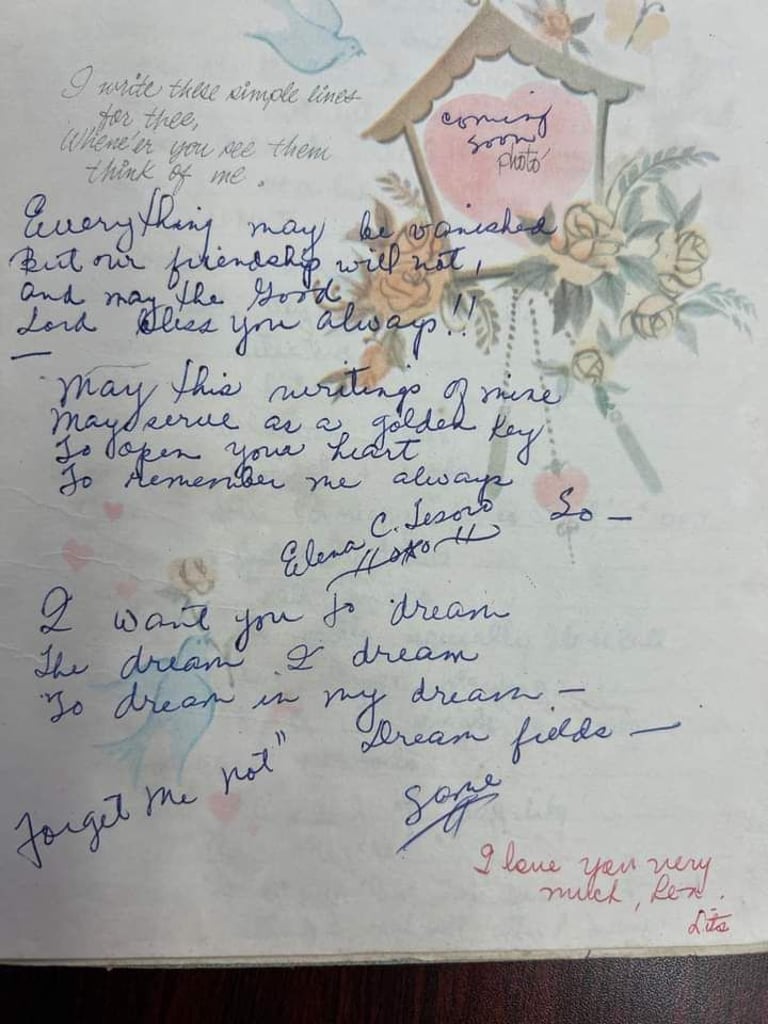 I write these simple lines
for thee,
Whene'er you see them
think of me.
coming
soon
photo
Everything may be vanished
But our friendship will not,
and may the Good
Lord bless you always!!
May this writings of mine
May serve as a golden key
To open your heart
To remember me always
So —
Elena C. Tesoro
I want you to dream
The dream I dream
To dream in my dream —
Dream fields —
Forget me not"
Same
I love you very
much, Rex.
Lits